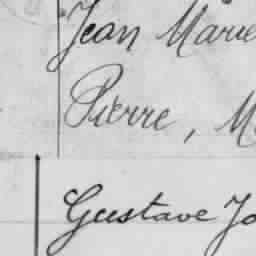 Jean Marie
Pierre, M
Gustave Jo